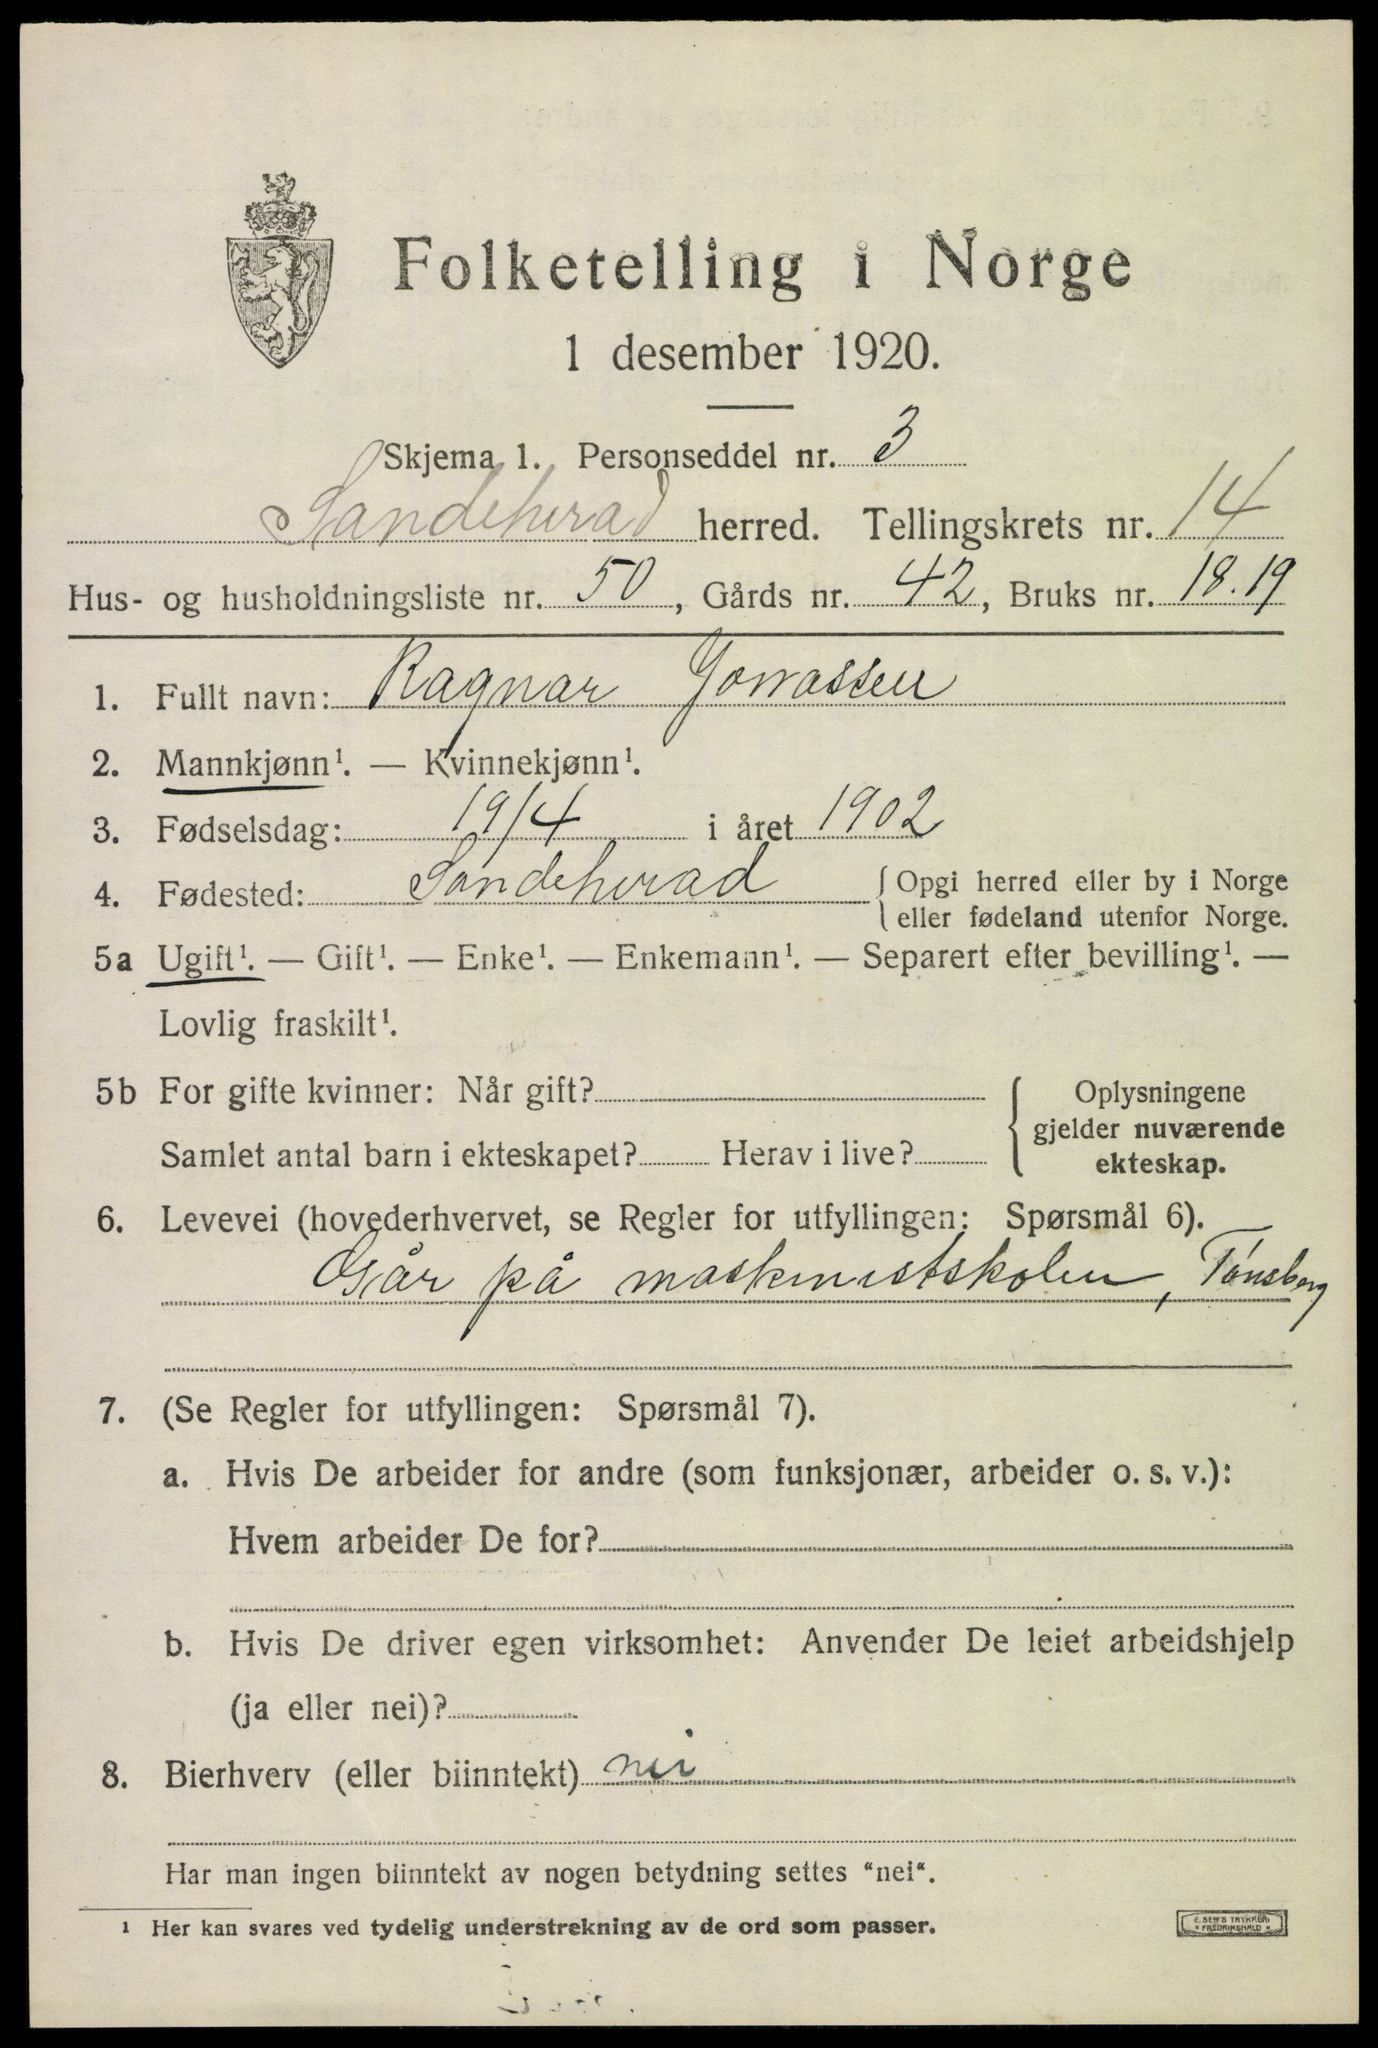 Folketelling i Norge
1 desember 1920.
Skjema 1. Personseddel nr. 3
Sandeherad herred. Tellingskrets nr. 14
Hus- og husholdningsliste nr. 50, Gårds nr. 42, Bruks nr. 18.19
1. Fullt navn: Ragnar Jonassen
2. Mannkjønn¹. — Kvinnekjønn¹.
3. Fødselsdag: 19/4 i året 1902
4. Fødested: Sandeherad { Opgi herred eller by i Norge
eller fødeland utenfor Norge.
5a Ugift¹. — Gift¹. — Enke¹. — Enkemann¹. — Separert efter bevilling¹. —
Lovlig fraskilt¹.
5b For gifte kvinner: Når gift?
Samlet antal barn i ekteskapet? Herav i live?
Oplysningene
gjelder nuværende
ekteskap.
6. Levevei (hovederhvervet, se Regler for utfyllingen: Spørsmål 6).
Går på maskinistskolen, Tønsberg
7. (Se Regler for utfyllingen: Spørsmål 7).
a. Hvis De arbeider for andre (som funksjonær, arbeider o. s. v.):
Hvem arbeider De for?
b. Hvis De driver egen virksomhet: Anvender De leiet arbeidshjelp
(ja eller nei)?
8. Bierhverv (eller biinntekt) nei
Har man ingen biinntekt av nogen betydning settes "nei".
¹ Her kan svares ved tydelig understrekning av de ord som passer.
E. SEM'S TRYKKERI
FREDRIKSHALD